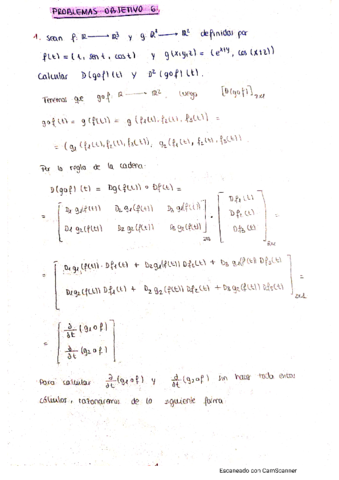 PROBLEMAS OBJETIVO 6
1. Sean f: R → R³ y g: R³ → R² definidas por
f(t) = (t, sen t, cos t) y g(x,y,z) = (e^{x+y}, cos(x+z))
Calcular D(g∘f)(t) y D²(g∘f)(t).
Tenemos que g∘f: R → R². Luego [D(g∘f)]₂ₓ₁
g∘f(t) = g(f(t)) = g(f₁(t), f₂(t), f₃(t)) =
= (g₁(f₁(t), f₂(t), f₃(t)), g₂(f₁(t), f₂(t), f₃(t))
Por la regla de la cadena:
D(g∘f)(t) = Dg(f(t)) ∘ Df(t) =
= [D₁g₁(f(t)) D₂g₁(f(t)) D₃g₁(f(t))
D₁g₂(f(t)) D₂g₂(f(t)) D₃g₂(f(t))] · [Df₁(t)
Df₂(t)
Df₃(t)] =
= [D₁g₁(f(t)) · Df₁(t) + D₂g₁(f(t)) Df₂(t) + D₃g₁(f(t)) Df₃(t)
D₁g₂(f(t)) Df₁(t) + D₂g₂(f(t)) Df₂(t) + D₃g₂(f(t)) Df₃(t)] =
= [∂/∂t (g₁∘f)
∂/∂t (g₂∘f)]
Para calcular ∂/∂t (g₁∘f) y ∂/∂t (g₂∘f) sin hacer todos estos
cálculos, razonaremos de la siguiente forma
Escaneado con CamScanner